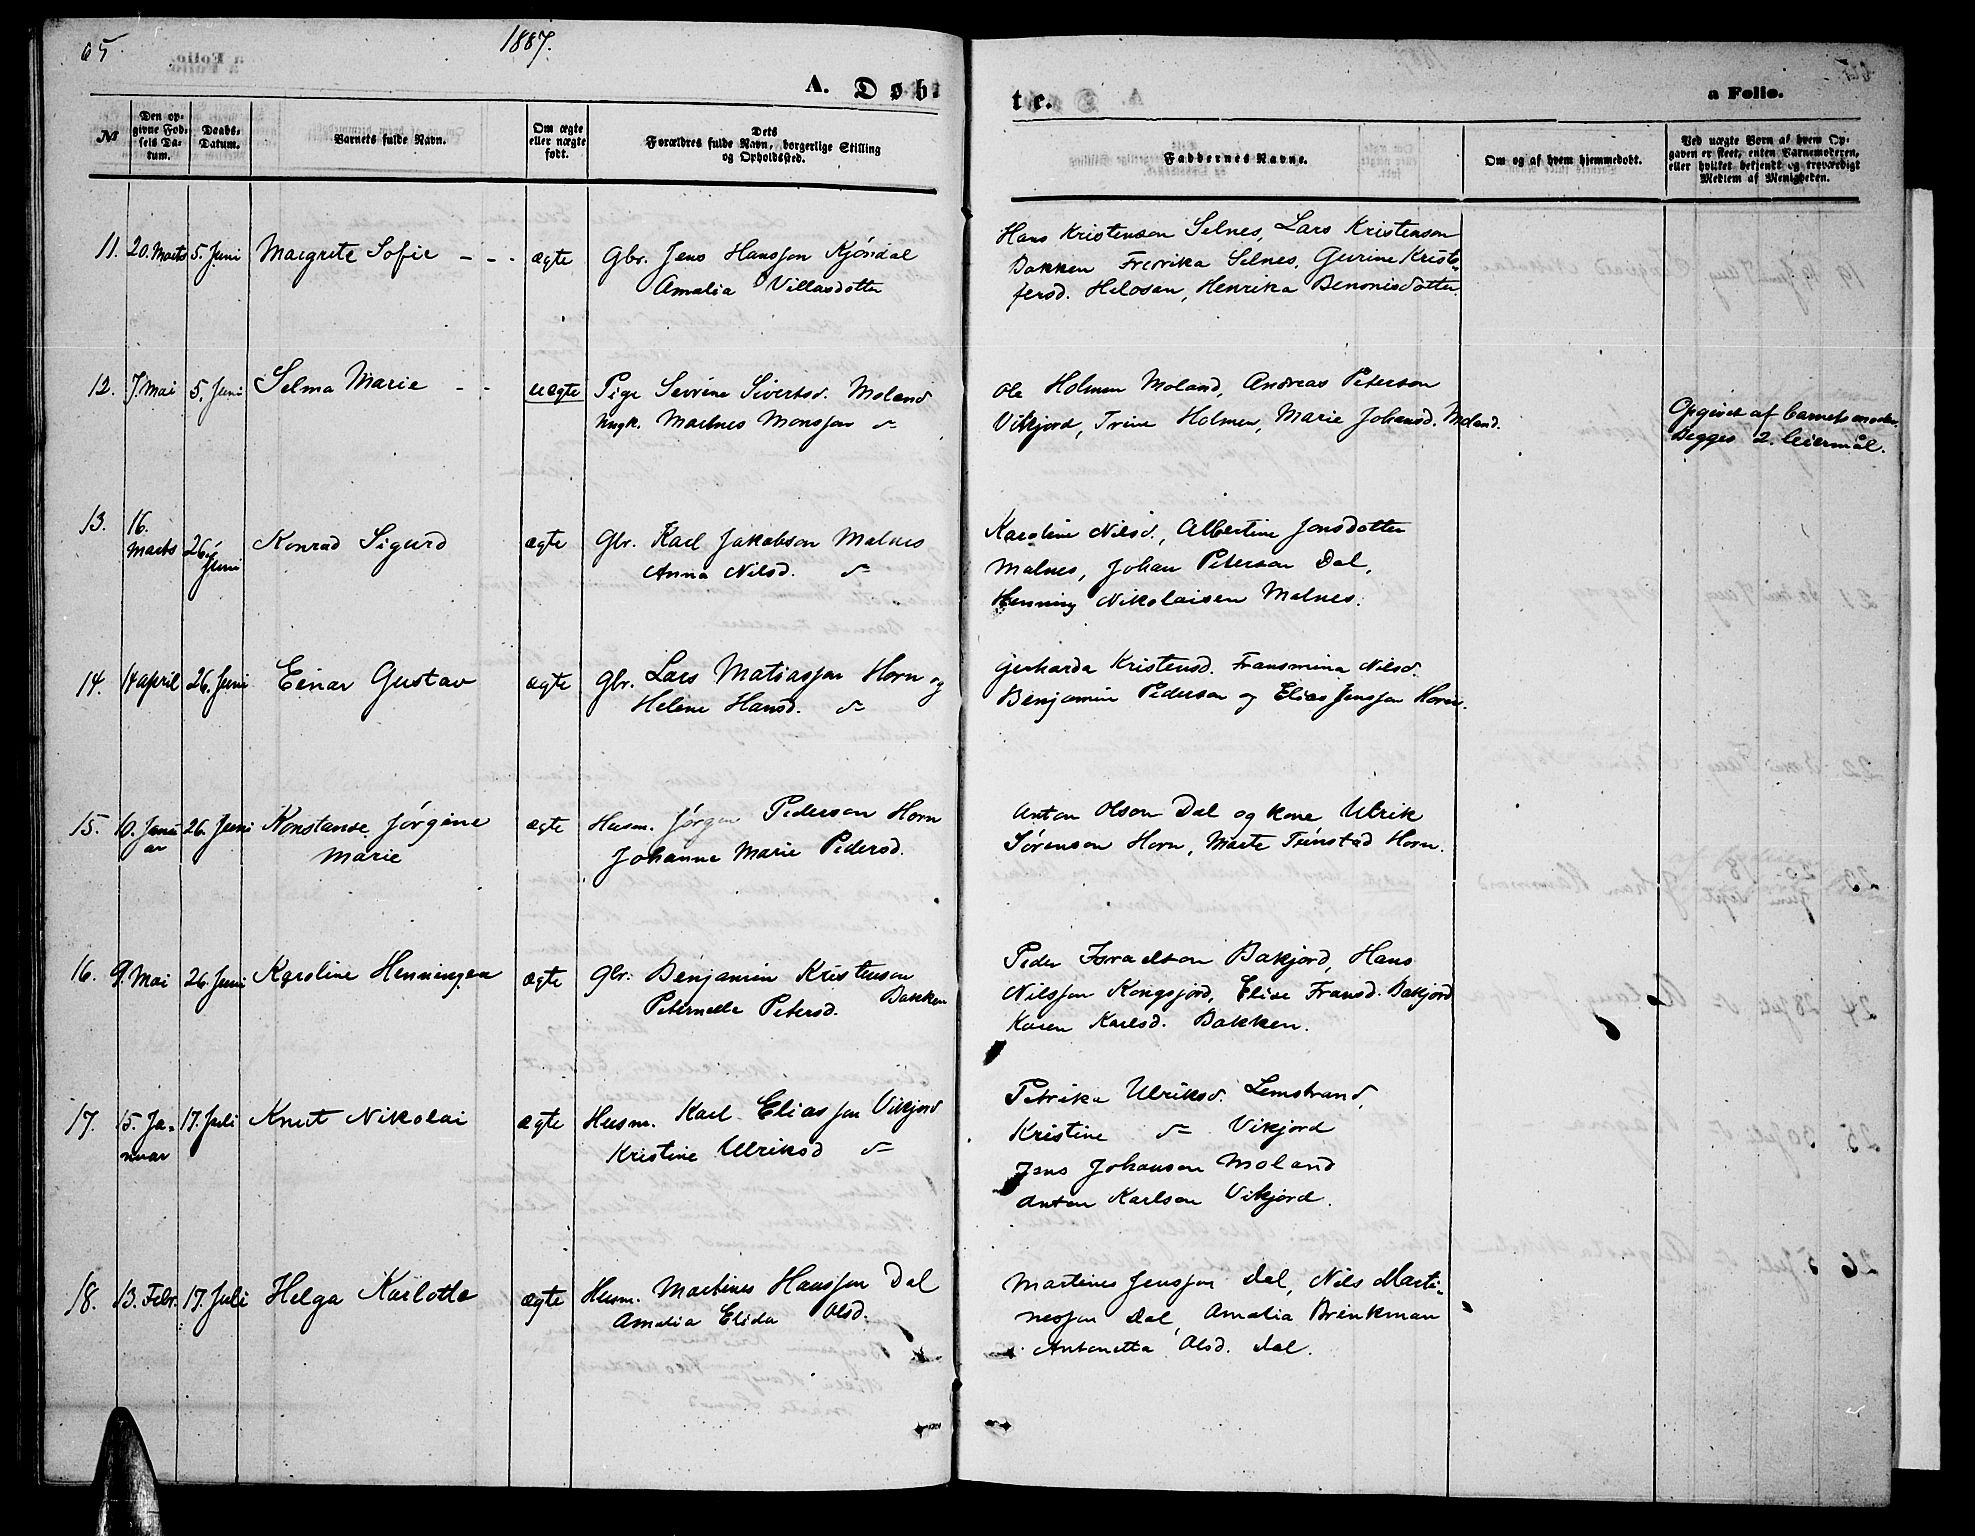 65
1887.
A. Døbte.
a Folio.
№
Den opgivne Fødsels Datum.
Daabs-Datum.
Barnets fulde Navn.
Om ægte eller uægte født.
Dets Forældres fulde Navn, borgerlige Stilling og Opholdssted.
Faddernes Navne.
Om og af hvem hjemmedøbt.
Ved uægte Børn af hvem Opgaven er skeet, enten Barnemoderen, eller hvilket bekjendt og troværdigt Medlem af Menigheden.
11. 20. Marts 5. Juni Margrete Sofie - - - ægte Gbr. Jens Hansson Kjørdal
Amalia Villasdotter
Hans Kristenson Selnes, Lars Kristenson
Bakken Fredrika Selnes, Gurine Kristo-
fersd. Henrika Benonisdotter.
12. 7. Mai 5. Juni Selma Marie - - uægte Pige Sevrine Sivertsd. Moland
Ungk. Martines Monsson do
Ole Holmen Moland, Andreas Peterson
Vikjord, Trine Holmen, Marie Johansd. Moland.
Opgivet af barnets moder.
Begges 2. leiermål.
13. 16. Marts 26. Juni Konrad Sigurd ægte Gbr. Karl Jakobson Malnes
Anna Nilsd. do
Karoline Nilsd., Albertine Jonsdotter
Malnes, Johan Peterson Dal,
Henning Nikolaisen Malnes.
14. 14 april 26. Juni Einar Gustav ægte Gbr. Lars Matiasson Horn og
Helene Hansd. do
Gerharda Kristensd. Fransmina Nilsd.
Benjamin Pederson og Elias Jensson Horn.
15. 10. Januar 26. Juni Konstanse Jørgine
Marie ægte Husm. Jørgen Pederson Horn
Johanna Marie Pedersd.
Anton Olson Dal og kone Ulrik
Sørenson Horn, Marte Tunstad Horn.
16. 9. Mai 26. Juni Karoline Henningea ægte Gbr. Benjamin Kristenson
Peternella Petersd. Bakken
Peder Israelson Bakjord, Hans
Nilsson Kongsjord, Elise Fransd. Bakjord
Karen Karlsd. Bakken.
17. 15. Januar 17. Juli Knut Nikolai ægte Husm. Karl Eliasson Vikjord
Kristine Ulriksd do
Petrika Ulriksd. Lemstrand,
Kristine do Vikjord
Jens Johanson Moland
Anton Karlson Vikjord.
18. 13. Febr. 17. Juli Helga Karlotte ægte Husm. Martines Hansson Dal
Amalia Elida Olsd.
Martines Jensson Dal, Nils Marti-
nesson Dal, Amalia Brinkman
Antonetta Olsd. Dal.